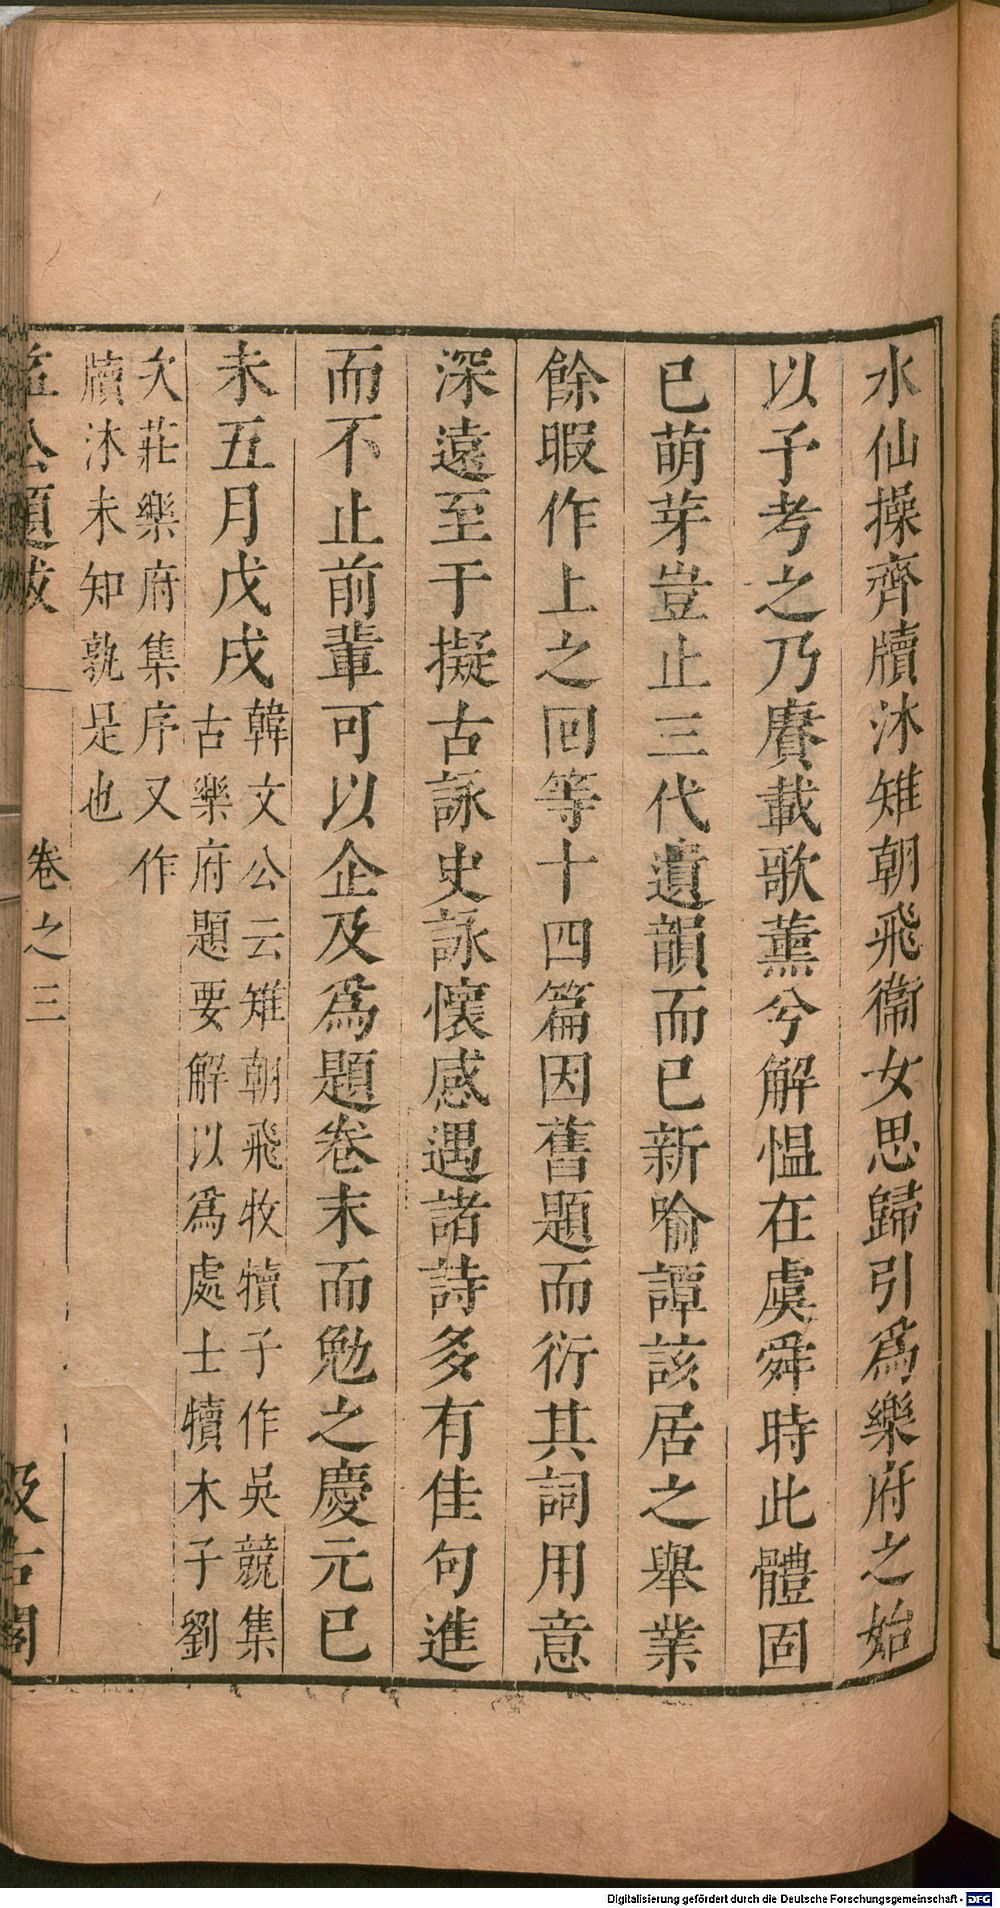 水仙操齊牘沐雉朝飛衞女思歸引爲樂府之始
以予考之乃賡載歌薰兮解慍在虞舜時此體固
已萌芽豈止三代遺韻而已新喻譚該居之舉業
餘暇作上之回等十四篇因舊題而衍其詞用意
深遠至于擬古詠史詠懷感遇諸詩多有佳句進
而不止前輩可以企及爲題卷末而勉之慶元已
未五月戊戌
韓文公云雉朝飛牧犢子作吳兢集
古樂府題要解以爲處士犢木子劉
次莊樂府集序又作
牘沐未知孰是也
益公題跋
卷之三
汲古閣
Digitalisierung gefördert durch die Deutsche Forschungsgemeinschaft - DFG